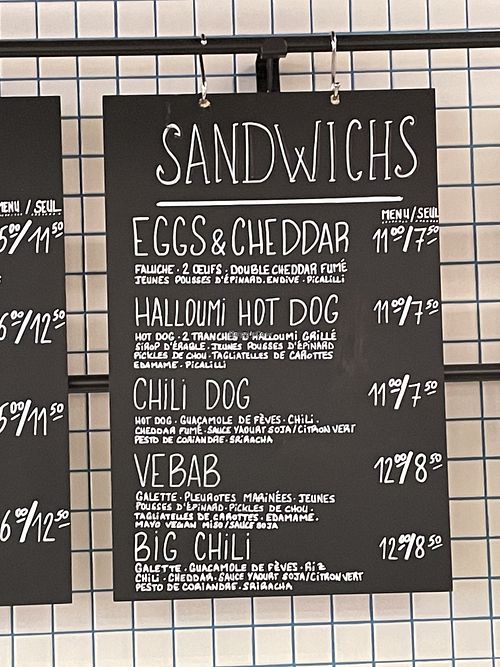 SANDWICHS
MENU/SEUL
EGGS & CHEDDAR 11⁰⁰/7⁵⁰
FALUCHE · 2 OEUFS · DOUBLE CHEDDAR FUMÉ
JEUNES POUSSES D'ÉPINARD. ENDIVE · PICALILLI
HALLOUMI HOT DOG 11⁰⁰/7⁵⁰
HOT DOG · 2 TRANCHES D'HALLOUMI GRILLÉ
SIROP D'ÉRABLE · JEUNES POUSSES D'ÉPINARD
PICKLES DE CHOU · TAGLIATELLES DE CAROTTES
EDAMAME · PICALILLI
CHILI DOG 11⁰⁰/7⁵⁰
HOT DOG · GUACAMOLE DE FÈVES · CHILI ·
CHEDDAR FUMÉ · SAUCE YAOURT SOJA/CITRON VERT
PESTO DE CORIANDRE · SRIRACHA
VEBAB 12⁰⁰/8⁵⁰
GALETTE · PLEUROTES MARINÉES · JEUNES
POUSSES D'ÉPINARD · PICKLES DE CHOU ·
TAGLIATELLES DE CAROTTES · EDAMAME ·
MAYO VEGAN MISO/SAUCE SOJA
BIG CHILI 12⁰⁰/8⁵⁰
GALETTE · GUACAMOLE DE FÈVES · RIZ
CHILI · CHEDDAR · SAUCE YAOURT SOJA/CITRON VERT
PESTO DE CORIANDRE · SRIRACHA
MENU/SEUL
5⁰⁰/11⁵⁰
6⁰⁰/12⁵⁰
5⁰⁰/11⁵⁰
6⁰⁰/12⁵⁰